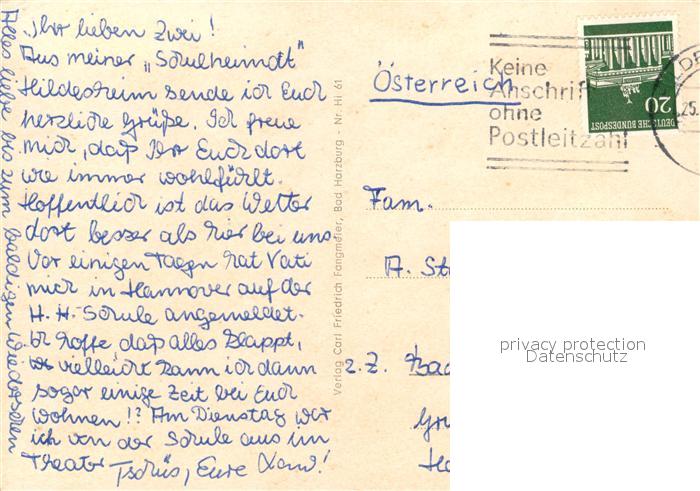 Ihr lieben Zwei!
Aus meiner „Schulheimat"
Hildesheim sende ich Euch
herzliche Grüße. Ich freue
mich, daß Ihr Euch dort
wie immer wohlfühlt.
Hoffentlich ist das Wetter
dort besser als hier bei uns.
Vor einigen Tagen hat Vati
mich in Hannover auf der
H.H.-Schule angemeldet.
Ich hoffe daß alles klappt,
vielleicht kann ich dann
sogar einige Zeit bei Euch
wohnen!? Am Dienstag war
ich von der Schule aus im
Theater Tschüs, Eure
Alles liebe bis zum baldigen Wiedersehen
Verlag Carl Friedrich Fangmeier, Bad Harzburg - Nr. Hi 61
Österreich
Keine
Anschrift
ohne
Postleitzahl
20
DEUTSCHE BUNDESPOST
25.
Fam.
A. St
z. Z.
privacy protection
Datenschutz